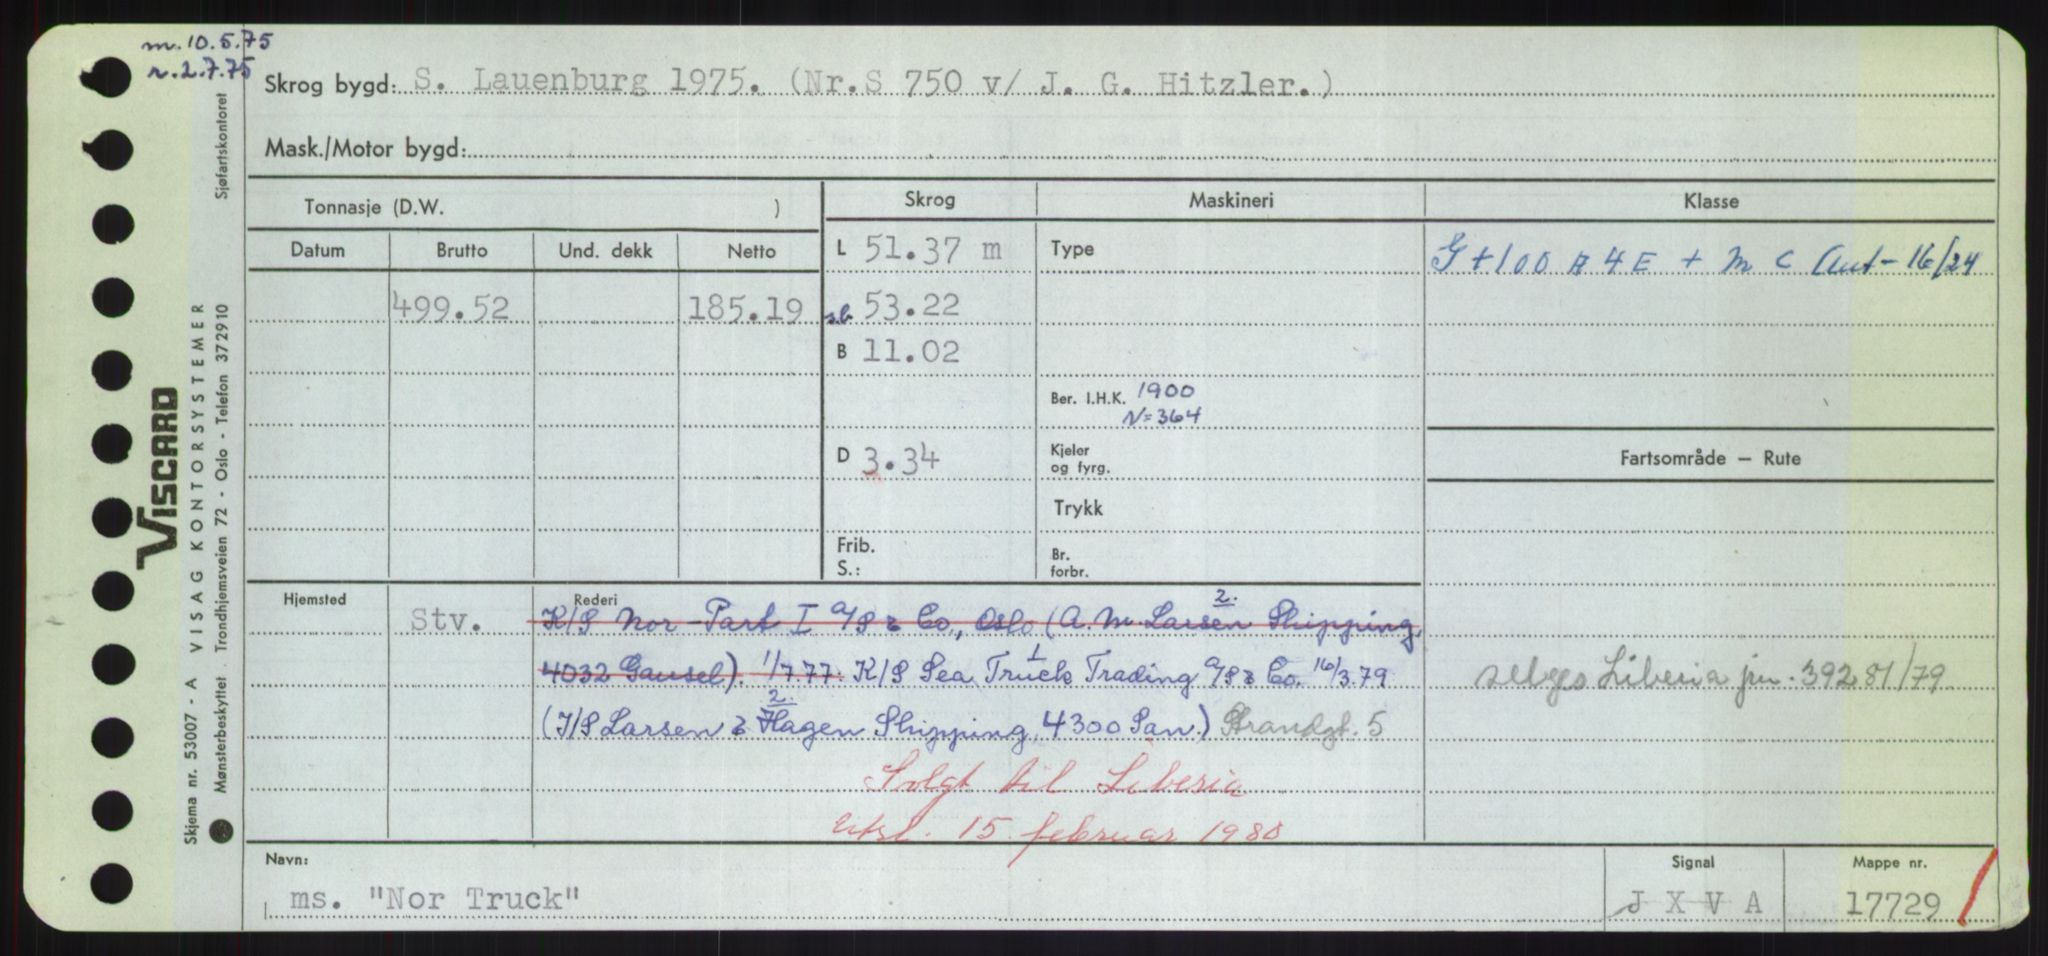 m. 10.5.75
r. 2.7.75
Skrog bygd: S. Lauenburg 1975. (Nr.S 750 v/ J. G. Hitzler.)
Mask./Motor bygd:
Tonnasje (D.W. )
Skrog
Maskineri
Klasse
Datum
Brutto
Und. dekk
Netto
L 51.37 m
Type
G +100 A 4 E + M C Aut - 16/24
499.52
185.19
s.b. 53.22
B 11.02
Ber. I.H.K. 1900
N=364
D 3.34
Kjeler
og fyrg.
Fartsområde — Rute
Trykk
Frib.
S.:
Br.
forbr.
Hjemsted
Stv.
Rederi
2.
K/S Nor-Part I A/S & Co., Oslo (A. M. Larsen Shipping,
1
4032 Gausel). 1/7.77. K/S Sea Truck Trading A/S & Co. 16/3.79
selges Liberia jnr. 39281/79
2.
(I/S Larsen & Hagen Shipping, 4300 San.) Strandgt. 5
Solgt til Liberia
utsl. 15. februar 1980
Navn:
ms. "Nor Truck"
Signal
J X V A
Mappe nr.
17729
VISCARD
Skjema nr. 53007 - A VISAG KONTORSYSTEMER
Mønsterbeskyttet . Trondhjemsveien 72 - Oslo - Telefon 372910
Sjøfartskontoret